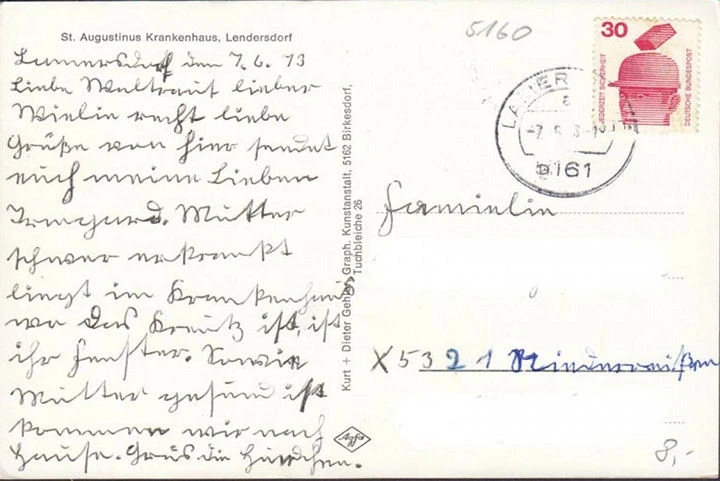 St. Augustinus Krankenhaus, Lendersdorf
5160
Lammersdorf den 7. 6. 73
Liebe Waltraut lieber
Willin recht liebe
Grüße von hier sendet
euch meine Lieben
Irmgard. Mutter
schwer erkrankt
liegt im Krankenhaus
wo das Kreutz ist, ist
ihr Fenster. Sowie
Mutter gesund ist
kommen wir nach
Hause. Grüs die Hündchen.
Kurt + Dieter Gehler, Graph. Kunstanstalt, 5162 Birkesdorf,
Tuchbleiche 26
Agfa
30
JEDERZEIT SICHERHEIT
DEUTSCHE BUNDESPOST
5161
Famielie
X 5321 Niederweißen
8,-